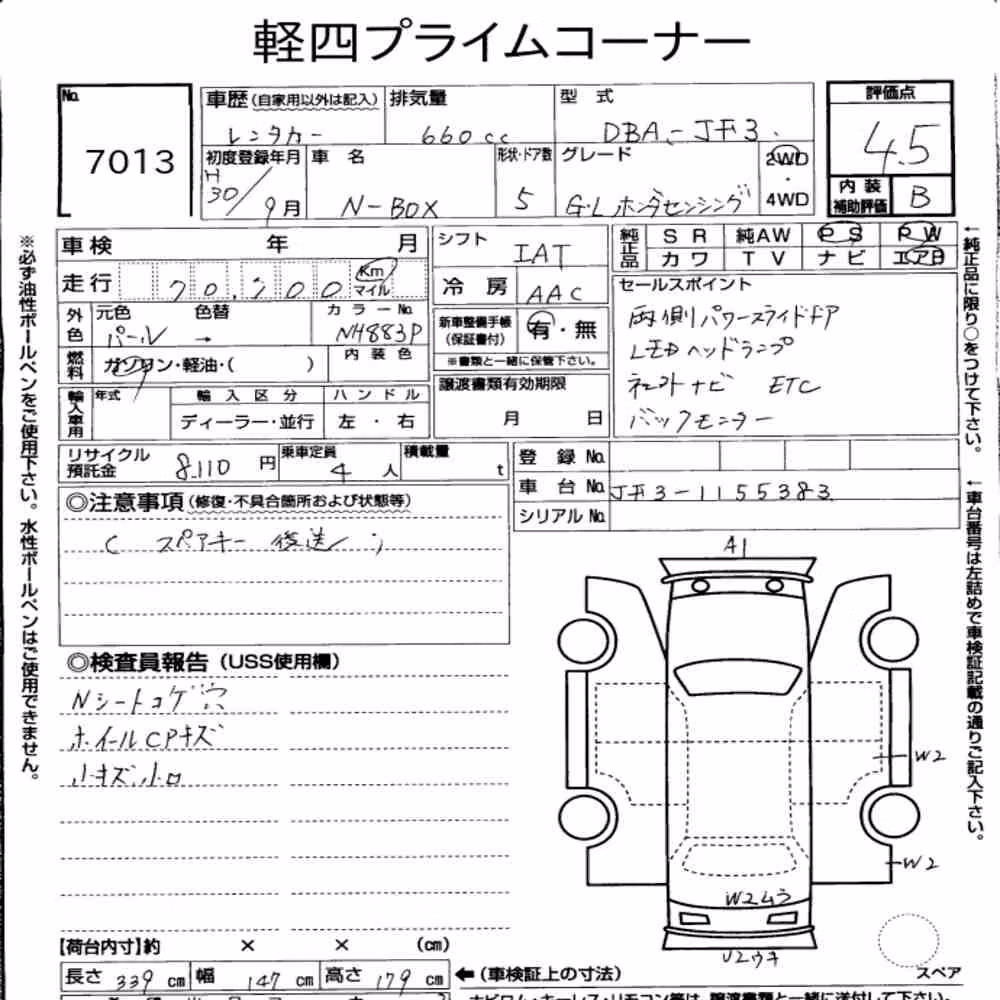 軽四プライムコーナー
No. 7013
車歴(自家用以外は記入) 排気量 型式 評価点
レンタカー 660cc DBA-JF3 4.5
初度登録年月 車名 形状・ドア数 グレード 2WD・4WD 内装補助評価 B
H30/9月 N-BOX 5 G・L ホンダセンシング
車検 年 月 シフト IAT 純正品 SR 純AW PS PW
カワ TV ナビ エアB
走行 Km マイル 冷房 AAC セールスポイント
外色 元色 色替 カラーNo. 新車整備手帳(保証書付) 有・無 両側パワースライドドア
パール → NH883P LEDヘッドランプ
燃料 ガソリン・軽油・( ) 内装色 ※書類と一緒に保管下さい。 ナビ ETC
輸入車用 年式 輸入区分 ハンドル 譲渡書類有効期限 バックモニター
ディーラー・並行 左・右 月 日
リサイクル預託金 8,110円 乗車定員 4人 積載量 t 登録No.
車台No. JF3-1155383
シリアルNo.
◎注意事項(修復・不具合箇所および状態等)
( スペアキー 後送 )
◎検査員報告(USS使用欄)
Nシートコゲ穴
ホイールCPキズ
小キズ小凹
A1
W2
W2
W2ムラ
U2ウキ
スペア
【荷台内寸】約 × × (cm)
長さ 339cm 幅 147cm 高さ 179cm ←(車検証上の寸法)
※必ず油性ボールペンをご使用下さい。水性ボールペンはご使用できません。
←純正品に限り○をつけて下さい。
←車台番号は左詰めで車検証記載の通りご記入下さい。